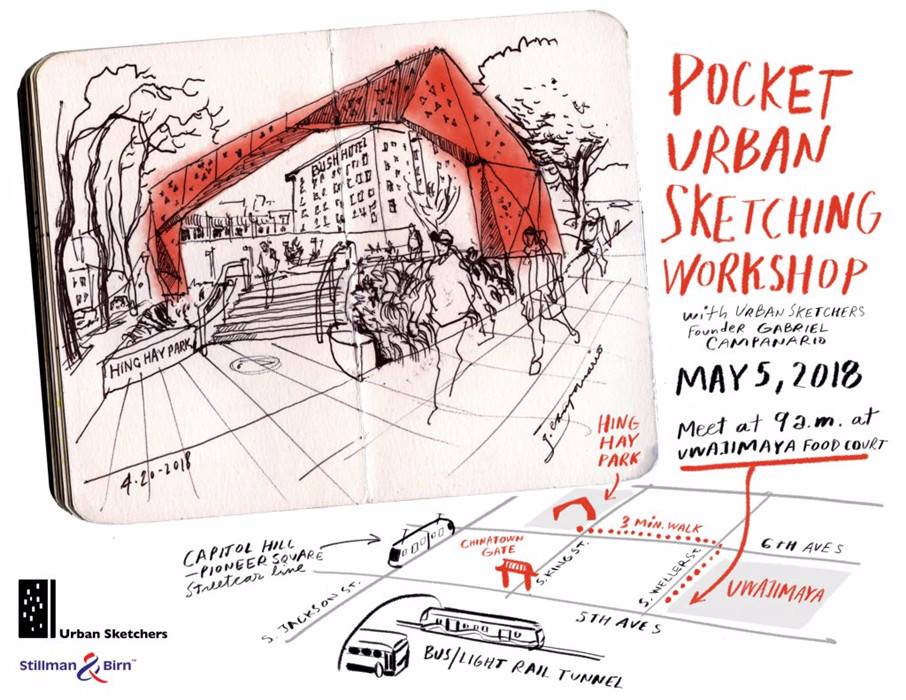 BUSH HOTEL
HING HAY PARK
4-20-2018
g. campanario
POCKET
URBAN
SKETCHING
WORKSHOP
with URBAN SKETCHERS
Founder GABRIEL
CAMPANARIO
MAY 5, 2018
Meet at 9 a.m. at
UWAJIMAYA FOOD COURT
HING
HAY
PARK
3 MIN. WALK
CHINATOWN
GATE
6TH AVE S
CAPITOL HILL
–PIONEER SQUARE
Streetcar line
S. KING ST.
S. WELLER ST.
UWAJIMAYA
S. JACKSON ST.
5TH AVE S
BUS/LIGHT RAIL TUNNEL
Urban Sketchers
Stillman & Birn™